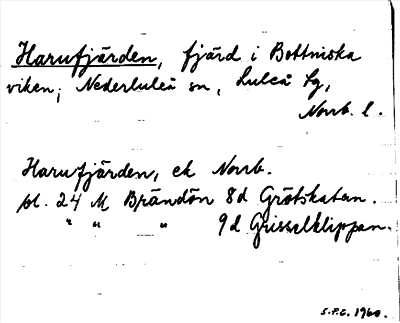 Harufjärden, fjärd i Bottniska
viken, Nederluleå sn, Luleå tg,
Norrb. l.
Harufjärden, ek Norrb.
pl. 24 M Brändön 8d Grötskatan.
" " " 9d Grisselklippan.
S.P.C. 1960.